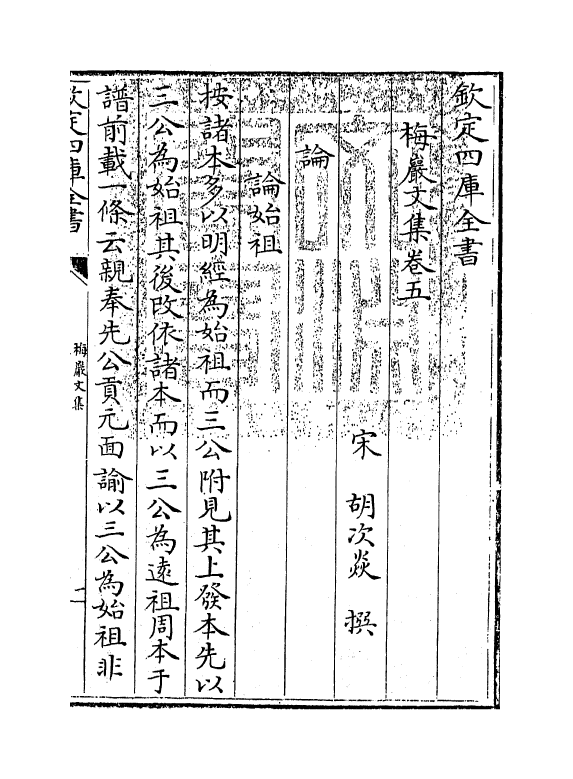 欽定四庫全書
梅巖文集卷五
宋 胡次焱 撰
論
論始祖
按諸本多以明經為始祖而三公附見其上發本先以
三公為始祖其後改依諸本而以三公為遠祖周本于
譜前載一條云親奉先公貢元面諭以三公為始祖非
欽定四庫全書
梅巖文集